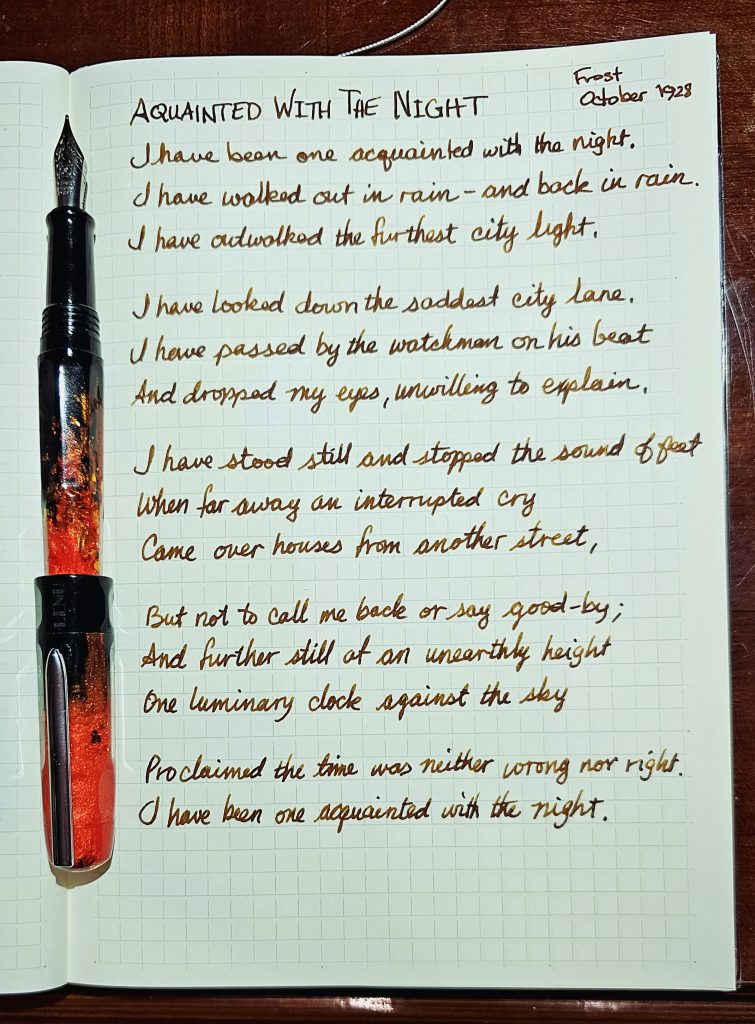 AQUAINTED WITH THE NIGHT
Frost
October 1928
I have been one acquainted with the night.
I have walked out in rain - and back in rain.
I have outwalked the furthest city light.
I have looked down the saddest city lane.
I have passed by the watchman on his beat
And dropped my eyes, unwilling to explain.
I have stood still and stopped the sound of feet
When far away an interrupted cry
Came over houses from another street,
But not to call me back or say good-by;
And further still at an unearthly height
One luminary clock against the sky
Proclaimed the time was neither wrong nor right.
I have been one acquainted with the night.